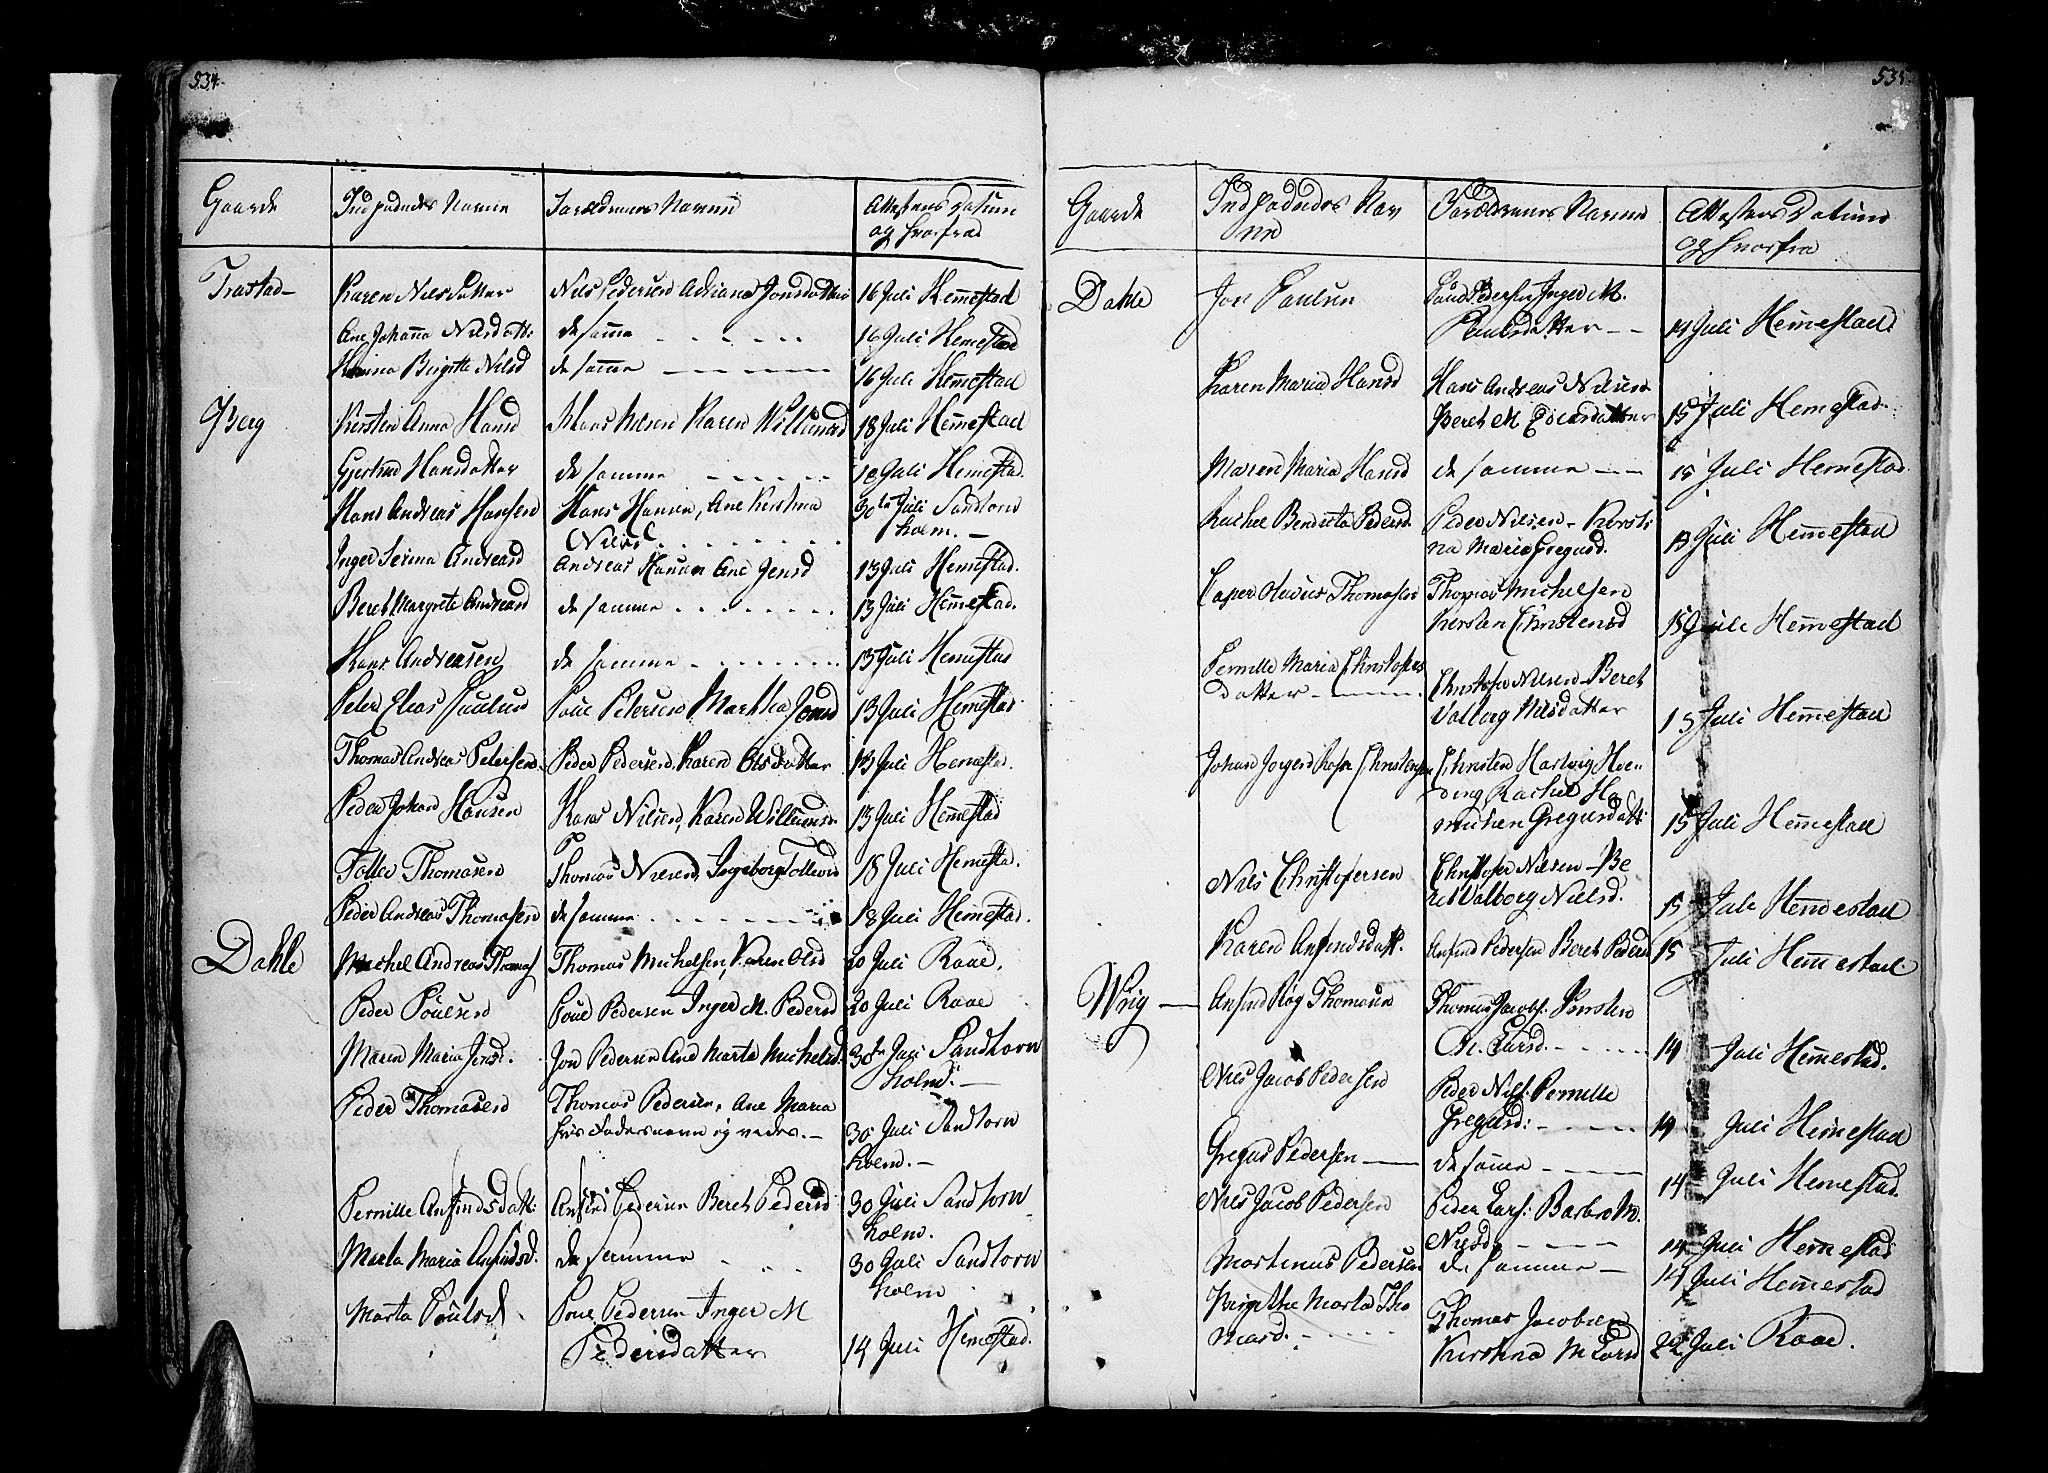 534.
Gaarde Indpodnedes Navne Forældrenes Navne Attestens Datum
og hvorfra
Trastad Karen Nilsdatter Nils Pedersen Adriana Jonsdatter 16 Juli Hem̅estad
Ane Johan̅a Nilsdatt: de sam̅e 16 Juli Hem̅estad
Birgitte Nilsd de sam̅e 16 Juli Hem̅estad
Berg Kirsten Anna Hansd Hans Nilsen Karen Willumsd 18 Juli Hem̅estad
Gjertrud Hansdatter de samme 18 Juli Hem̅estad.
Hans Andreas Hansen Hans Hansen, Ane Kirstina 30te Juli Sandtorv
Nilsd holm. —
Inger Serina Andreasd Andreas Hansen Ane Jensd 13 Juli Hem̅estad.
Beret Margrete Andreasd de samme 13 Juli Hem̅estad.
Hans Andreasen de samme 13 Juli Hem̅estad
Peter Elias Paulsen Poul Petersen Martha Jonsd 13 Juli Hem̅estad
Thomas Andreas Petersen Peder Pedersen, Karen Olsdatter 13 Juli Hem̅estad.
Peder Johan Hansen Hans Nilsen, Karen Willumsd 13 Juli Hem̅estad
Tollev Thomasen Thomas Nilsen, Ingeborg Tollevsd 18 Juli Hem̅estad.
Peder Andreas Thomasen de samme 18 Juli Hem̅estad.
Dahle Michel Andreas Thomas Thomas Michelsen, Karen Olsd 20 Juli Raae.
Peder Poulsen Poul Pedersen Inger M. Pedersd 20 Juli Raae
Maren Maria Jonsd. Jon Pedersen Ane Marta Michelsd. 30te Juli Sandtorv
holm. —
Peder Thomasen Thomas Pedersen, Ane Maria
hvis Fadersnavn ej vedes. — 30 Juli Sandtorv
holm. —
Pernille Anfindsdatt: Anfind Pedersen Beret Pedersd 30 Juli Sandtorv
holm.
Marta Maria Anfindsd. de samme 30 Juli Sandtorv
holm
Marta Poulsd. Poul Pedersen Inger M
Pedersdatter 14 Juli Hem̅estad.
535.
Gaarde Indpodnedes Nav Forældrenes Navne Attestens Datum
ne og hvorfra
Dahle Jon Paulsen Poul Pedersen Inger M.
Paulsdatter 14 Juli Hem̅estad.
Karen Maria Hansd Hans Andreas Nilsen
Beret M Edisdatter 15 Juli Hem̅estad.
Maren Maria Hansd de samme 15 Juli Hem̅estad.
Rachel Bendicta Pedersd. Peder Nilsen - Kirsti
na Maria Gregusd. 13 Juli Hem̅estad
Caper Thomasen Thomas Michelsen
Kirsten Christensd 15 Juli Hem̅estad
Pernille Maria Christofers
datter Christofer Nilsen - Beret
Valborg Nilsdatter 15 Juli Hem̅estad
Johan Jørgen Christensen Christen Hartvig Hve-
ding Rachel Ha
Gregusdatt: 15 Juli Hem̅estad
Nils Christofersen Christofer Nilsen - Be
ret Valborg Nielsd. 15 Juli Hem̅estad
Karen Anfindsdatt. Anfind Pedersen Beret Pedersd 15 Juli Hem̅estad.
Wrig — Anfind Røg Thomasen Thomas Jacobs: Kirsten
M. Larsd. 14 Juli Hem̅estad.
Nils Jacob Pedersen Peder Nils: Pernille
Gregusd: 14 Juli Hem̅estad
Gregus Pedersen de sam̅e 14 Juli Hem̅estad.
Nils Jacob Pedersen Peder Lars: Barbro M.
Nilsd 14 Juli Hem̅estad
Martinus Pedersen de samme 14 Juli Hem̅estad
Birgithe Marta Tho
masd. Thomas Jacobsen
Kirstina M Larsd 22 Juli Raae.